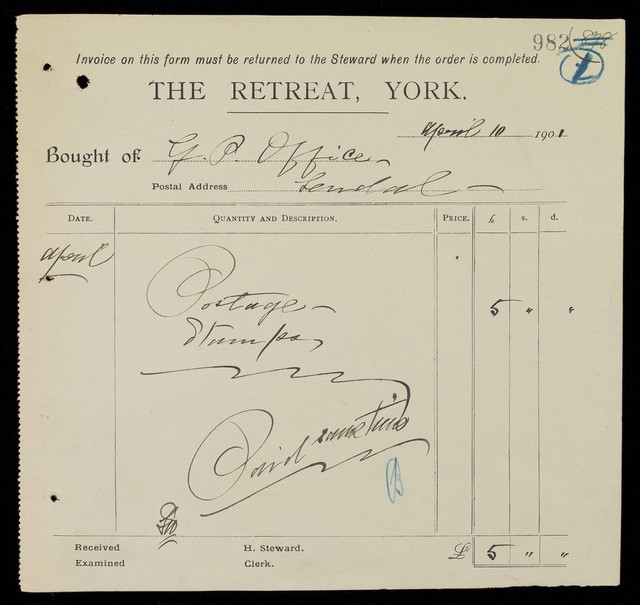 982
1
Invoice on this form must be returned to the Steward when the order is completed.
THE RETREAT, YORK.
April 10 1901
Bought of G. P. Office
Postal Address Lendal
DATE. QUANTITY AND DESCRIPTION. PRICE. £ s. d.
April
Postage 5 " "
Stamps
Paid same time
B
Received H. Steward. £ 5 " "
Examined Clerk.